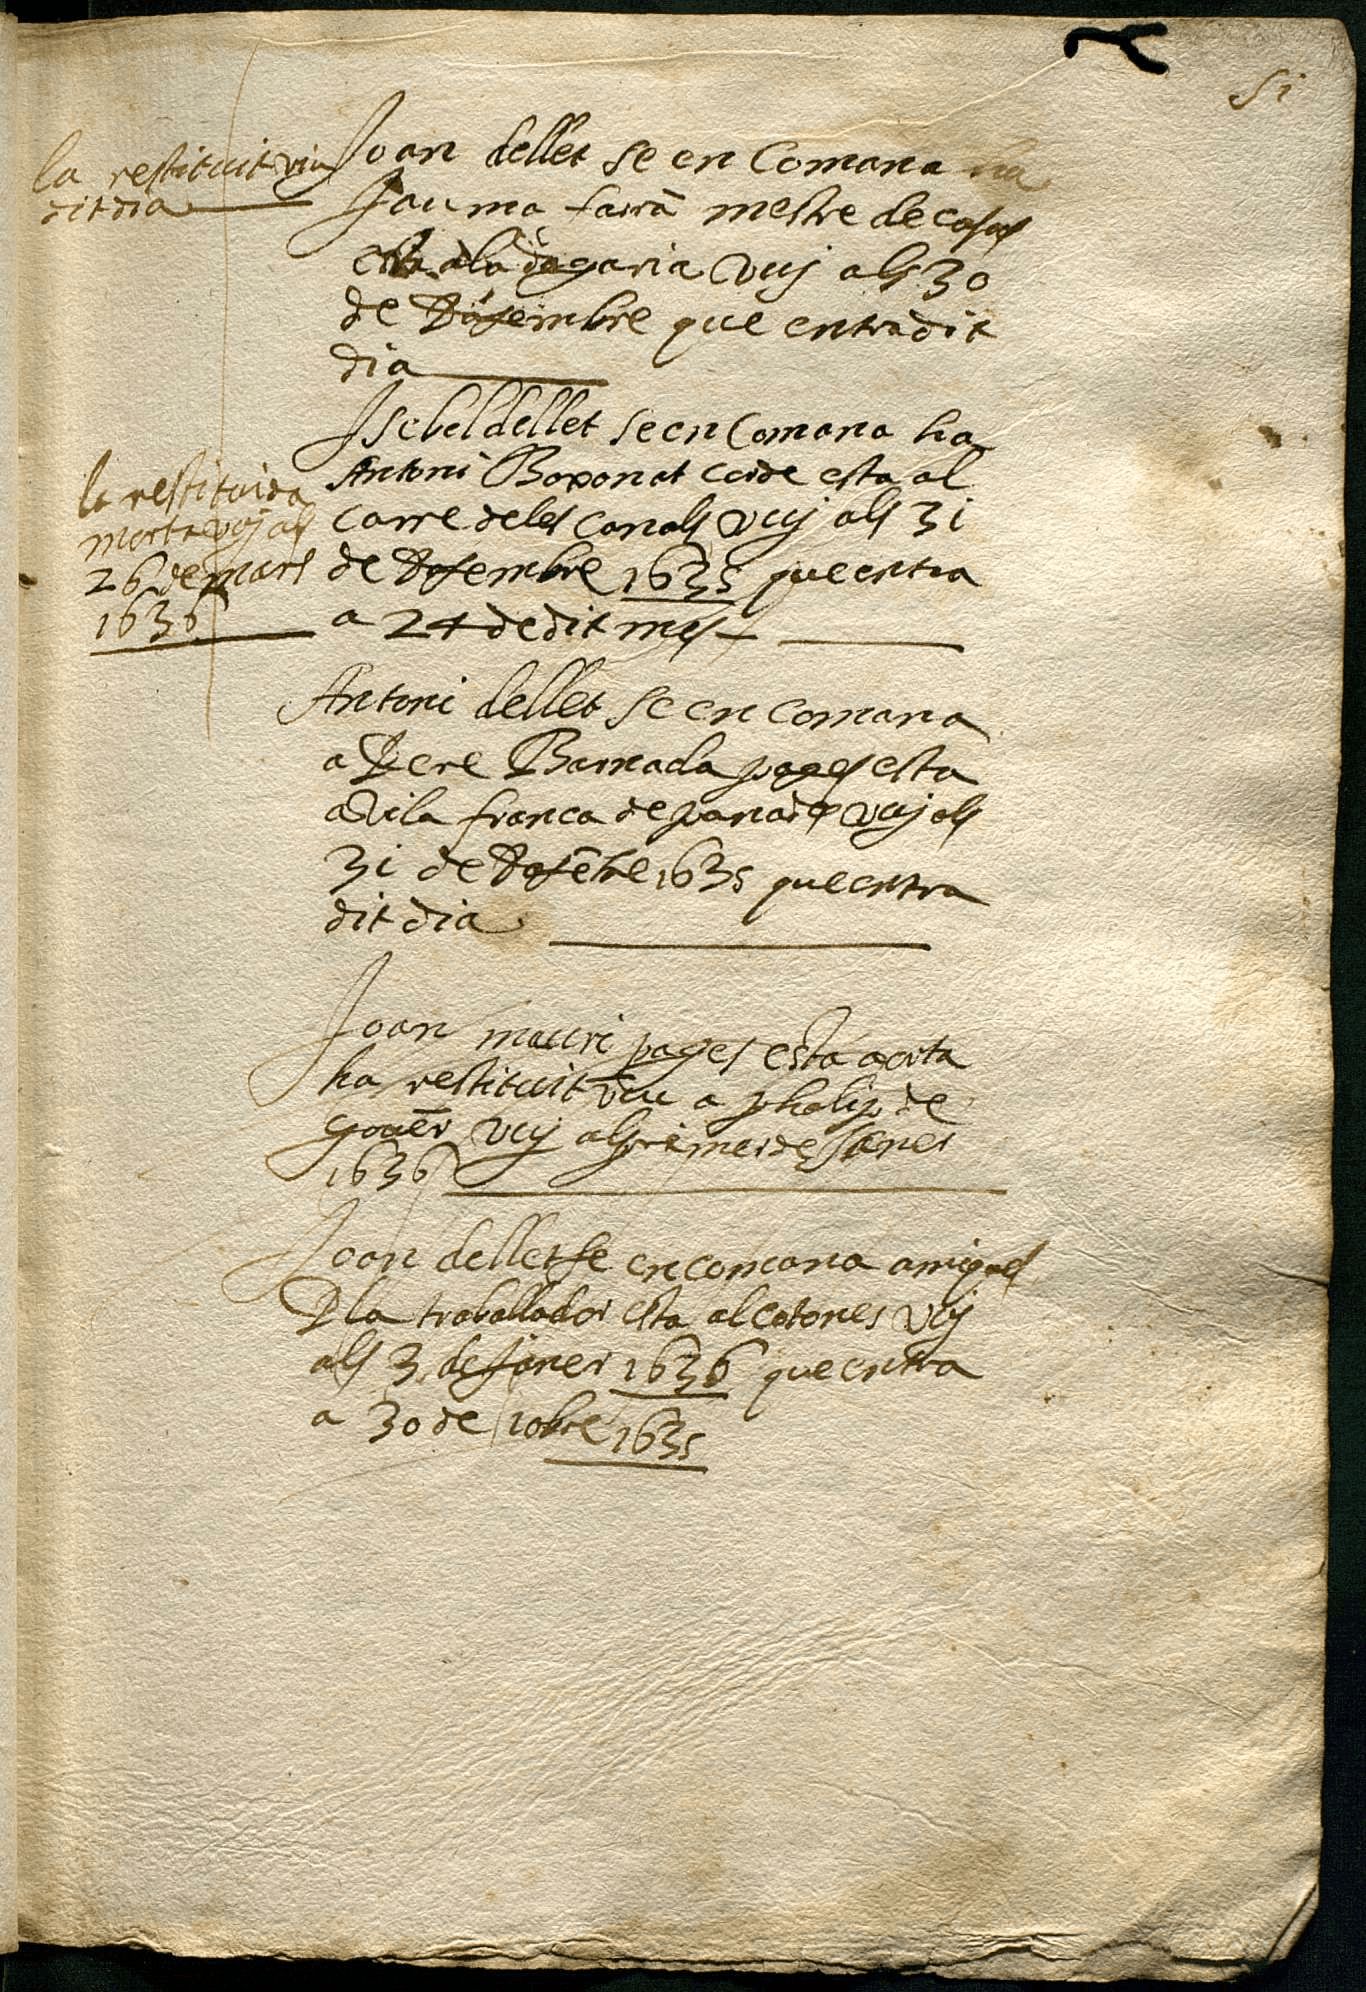 51
la restituit viu
dit dia
Joan dellet se en Comana ha
Jauma farrã mestre de casas
esta a la dagaria vuy als 30
de Desembre que entra dit
dia
Isebel dellet se en Comana ha
Antoni esta al
carre deles canals vuy als 31
de Desembre 1635 que entra
a 24 de dit mes
la restituida
morta vuy als
26 de mars
1636
Antoni dellet se en comana
a Pere Barnada pages esta
a Vila franca de panades vuy als
31 de Desẽbre 1635 que entra
dit dia
Joan mauri pages esta aorta
ha restituit viu a phalip de
govẽr vuy al primer de Janer
1636
Joan dellet se en comana a miquel
Pla traballador esta al cotones vuy
als 3 de Janer 1636 que entra
a 30 de 10bre 1635